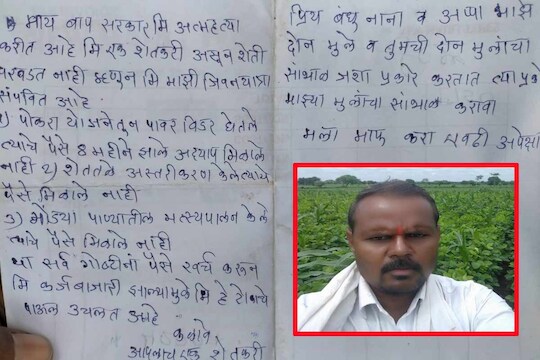 माय बाप सरकार मि आत्महत्या
करीत आहे मि एक शेतकरी असून शेती
परवडत नाही म्हणून मि माझी जिवनयात्रा
संपवित आहे
1) पोकरा योजनेतून पावर विडर घेतले
त्याचे पैसे 8 महीने झाले अद्याप मिळाले
नाही 2) शेततळे अस्तरीकरण केले त्याचे
पैसे मिळाले नाही
3) गोड्या पाण्यातील मत्स्यपालन केले
त्याचे पैसे मिळाले नाही
या सर्व गोष्टींना पैसे खर्च करून
मि कर्जबाजारी झाल्यामुळे मि हे टोकाचे
पाऊल उचलत आहे
आपलाच एक शेतकरी
प्रिय बंधु नाना व अप्पा माझे
दोन मुले व तुमची दोन मुलांचा
सांभाळ जशा प्रकारे करतात त्या प्रकारे
माझ्या मुलांचा सांभाळ करावा
मला माफ करा एवढी अपेक्षा